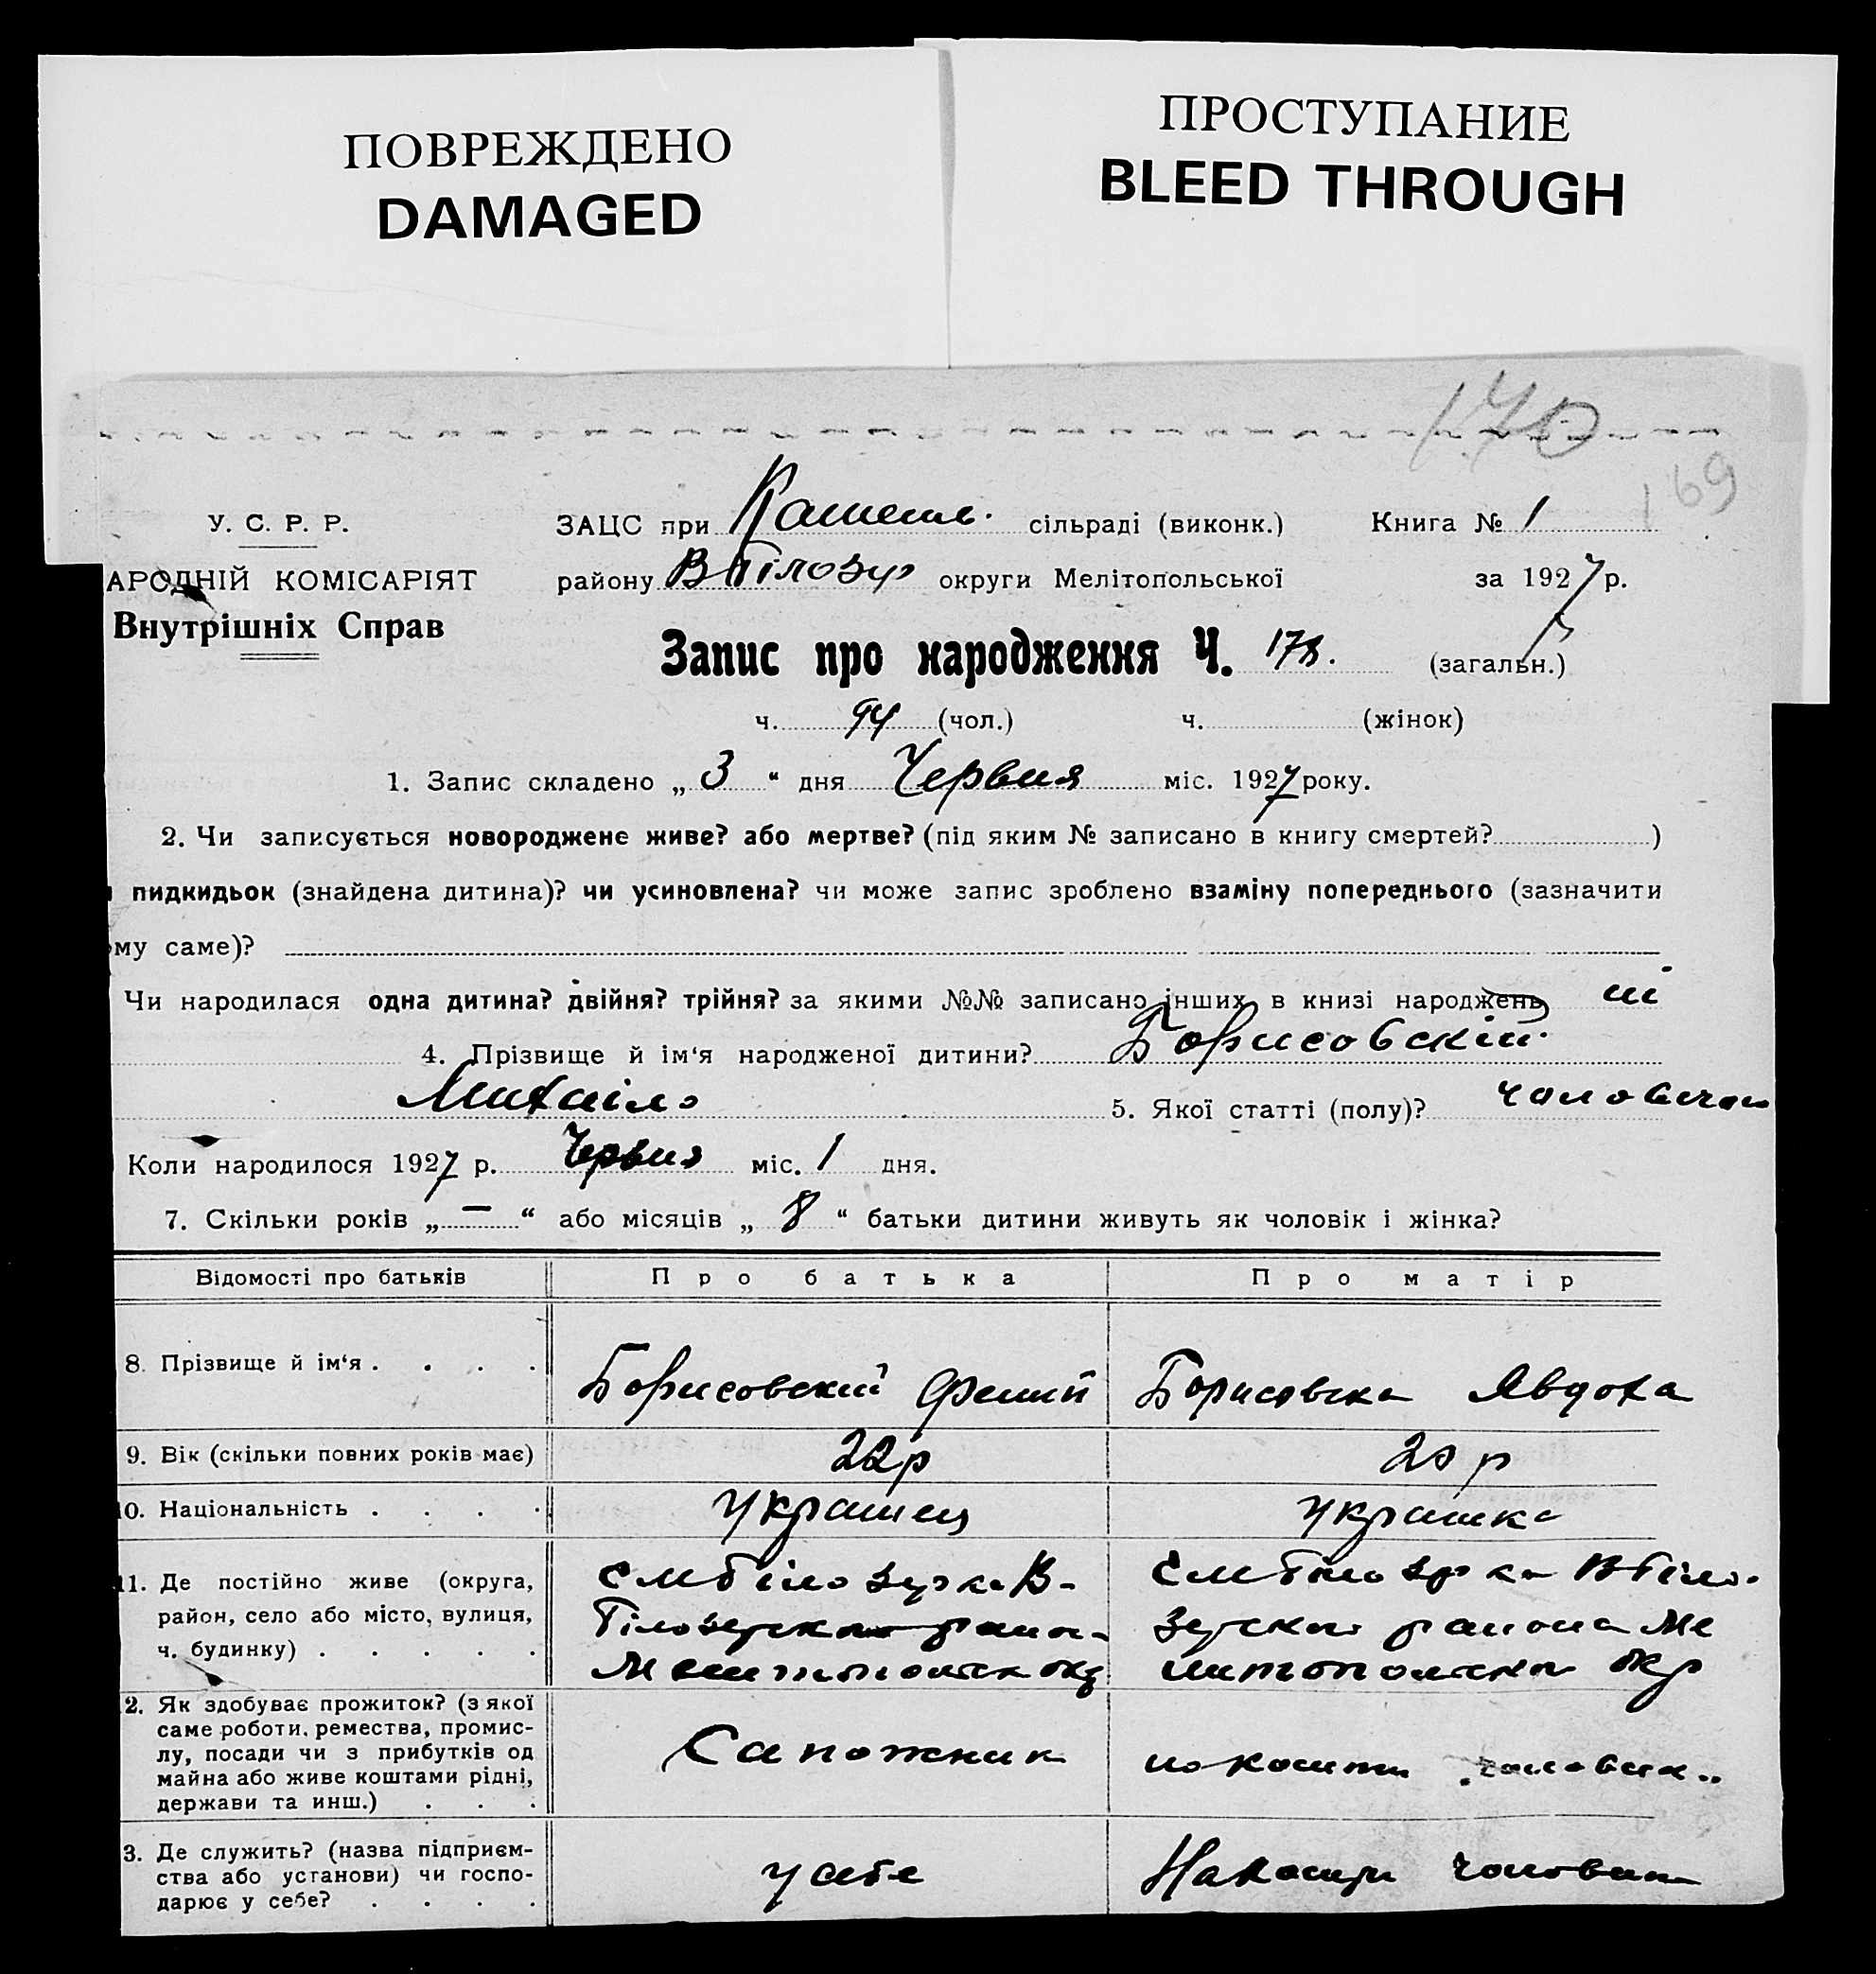 ПОВРЕЖДЕНО
DAMAGED
ПРОСТУПАНИЕ
BLEED THROUGH
170
169
У. С. Р. Р.
ЗАЦС при сільраді (виконк.) Книга № 1
АРОДНІЙ КОМІСАРІЯТ
району В Білозер округи Мелітопольської за 1927 р.
Внутрішніх Справ
Запис про народження Ч. 178. (загальн.)
ч. 94 (чол.) ч. (жінок)
1. Запис складено „ 3 “ дня Червня міс. 1927 року.
2. Чи записується новороджене живе? або мертве? (під яким № записано в книгу смертей? )
пидкидьок (знайдена дитина)? чи усиновлена? чи може запис зроблено взаміну попереднього (зазначити
ому саме)?
Чи народилася одна дитина? двійня? трійня? за якими №№ записано інших в книзі народжень ні
4. Прізвище й ім‘я народженої дитини? Борисовский
Михаіло 5. Якої статті (полу)? чоловичои
Коли народилося 1927 р. Червня міс. 1 дня.
7. Скільки років „ — “ або місяців „ 8 “ батьки дитини живуть як чоловік і жінка?
Відомості про батьків Про батька Про матір
8. Прізвище й ім‘я . . . . Борисовский Борисовска Явдоха
9. Вік (скільки повних років має) 22 р 20 р
10. Національність . . . . Украинец Украинка
11. Де постійно живе (округа,
район, село або місто, вулиця,
ч. будинку) . . . . .
См Білозерка В-
Білозерского район
Мелитопольск окр
См Білозерка В Біло-
зерского раиона Ме
литопольскои окр
12. Як здобуває прожиток? (з якої
саме роботи, ремества, промис-
лу, посади чи з прибутків од
майна або живе коштами рідні,
держави та инш.) . . .
Сапожник
13. Де служить? (назва підприєм-
ства або установи) чи госпо-
дарює у себе? . . . .
у себе